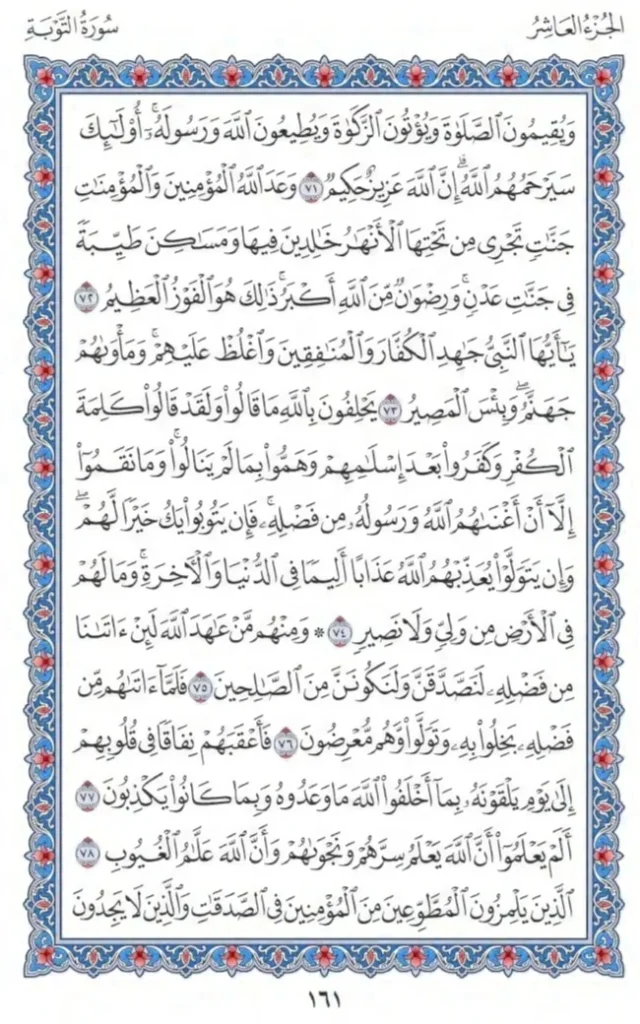 الجُزْءُ العَاشِرُ
سُورَةُ التَّوْبَةِ
وَيُقِيمُونَ ٱلصَّلَوٰةَ وَيُؤْتُونَ ٱلزَّكَوٰةَ وَيُطِيعُونَ ٱللَّهَ وَرَسُولَهُۥٓۚ أُوْلَٰٓئِكَ
سَيَرْحَمُهُمُ ٱللَّهُۗ إِنَّ ٱللَّهَ عَزِيزٌ حَكِيمٌ ٧١ وَعَدَ ٱللَّهُ ٱلْمُؤْمِنِينَ وَٱلْمُؤْمِنَٰتِ
جَنَّٰتٍ تَجْرِى مِن تَحْتِهَا ٱلْأَنْهَٰرُ خَٰلِدِينَ فِيهَا وَمَسَٰكِنَ طَيِّبَةً
فِى جَنَّٰتِ عَدْنٍۚ وَرِضْوَٰنٌ مِّنَ ٱللَّهِ أَكْبَرُۚ ذَٰلِكَ هُوَ ٱلْفَوْزُ ٱلْعَظِيمُ ٧٢
يَٰٓأَيُّهَا ٱلنَّبِىُّ جَٰهِدِ ٱلْكُفَّارَ وَٱلْمُنَٰفِقِينَ وَٱغْلُظْ عَلَيْهِمْۚ وَمَأْوَىٰهُمْ
جَهَنَّمُۖ وَبِئْسَ ٱلْمَصِيرُ ٧٣ يَحْلِفُونَ بِٱللَّهِ مَا قَالُواْ وَلَقَدْ قَالُواْ كَلِمَةَ
ٱلْكُفْرِ وَكَفَرُواْ بَعْدَ إِسْلَٰمِهِمْ وَهَمُّواْ بِمَا لَمْ يَنَالُواْۚ وَمَا نَقَمُوٓاْ
إِلَّآ أَنْ أَغْنَىٰهُمُ ٱللَّهُ وَرَسُولُهُۥ مِن فَضْلِهِۦۚ فَإِن يَتُوبُواْ يَكُ خَيْرًا لَّهُمْۖ
وَإِن يَتَوَلَّوْاْ يُعَذِّبْهُمُ ٱللَّهُ عَذَابًا أَلِيمًا فِى ٱلدُّنْيَا وَٱلْأٓخِرَةِۚ وَمَا لَهُمْ
فِى ٱلْأَرْضِ مِن وَلِىٍّ وَلَا نَصِيرٍ ٧٤ ۞ وَمِنْهُم مَّنْ عَٰهَدَ ٱللَّهَ لَئِنْ ءَاتَىٰنَا
مِن فَضْلِهِۦ لَنَصَّدَّقَنَّ وَلَنَكُونَنَّ مِنَ ٱلصَّٰلِحِينَ ٧٥ فَلَمَّآ ءَاتَىٰهُم مِّن
فَضْلِهِۦ بَخِلُواْ بِهِۦ وَتَوَلَّواْ وَّهُم مُّعْرِضُونَ ٧٦ فَأَعْقَبَهُمْ نِفَاقًا فِى قُلُوبِهِمْ
إِلَىٰ يَوْمِ يَلْقَوْنَهُۥ بِمَآ أَخْلَفُواْ ٱللَّهَ مَا وَعَدُوهُ وَبِمَا كَانُواْ يَكْذِبُونَ ٧٧
أَلَمْ يَعْلَمُوٓاْ أَنَّ ٱللَّهَ يَعْلَمُ سِرَّهُمْ وَنَجْوَىٰهُمْ وَأَنَّ ٱللَّهَ عَلَّٰمُ ٱلْغُيُوبِ ٧٨
ٱلَّذِينَ يَلْمِزُونَ ٱلْمُطَّوِّعِينَ مِنَ ٱلْمُؤْمِنِينَ فِى ٱلصَّدَقَٰتِ وَٱلَّذِينَ لَا يَجِدُونَ
١٦١